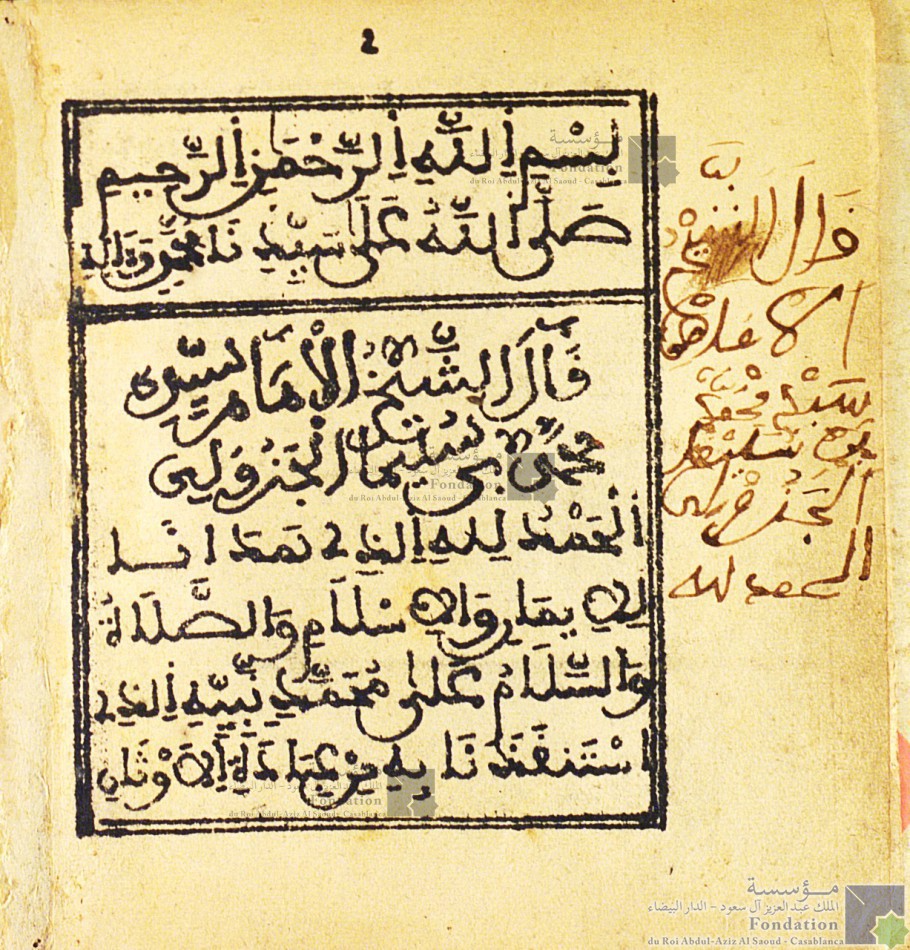 2
بِسْمِ اِللَّهِ اِلرَّحْمَٰنِ اِلرَّحِيمِ
صَلَّى اَللَّهُ عَلَى سَيِّدِنَا مُحَمَّدٍ وَءَالِهِ
قَالَ الشَّيْخُ الْإِمَامُ سَيِّدِي
مُحَمَّدُ بْنُ سُلَيْمَانَ الْجَزُولِي
اَلْحَمْدُ لِلهِ اِلذِي هَدَانَا
لِلْإِيمَانِ وَالْإِسْلَامِ وَالصَّلَاةُ
وَالسَّلَامُ عَلَى مُحَمَّدٍ نَبِيِّهِ اِلذِي
اسْتَنقَذَنَا بِهِ مِنْ عِبَادَةِ اِلْأَوْثَانِ
قَالَ الشيخ
الامام
سيدي محمد
بن سليمان
الجزولي
الحمد لله
مؤسسة
الملك عبد العزيز آل سعود - الدار البيضاء
Fondation
du Roi Abdul-Aziz Al Saoud - Casablanca